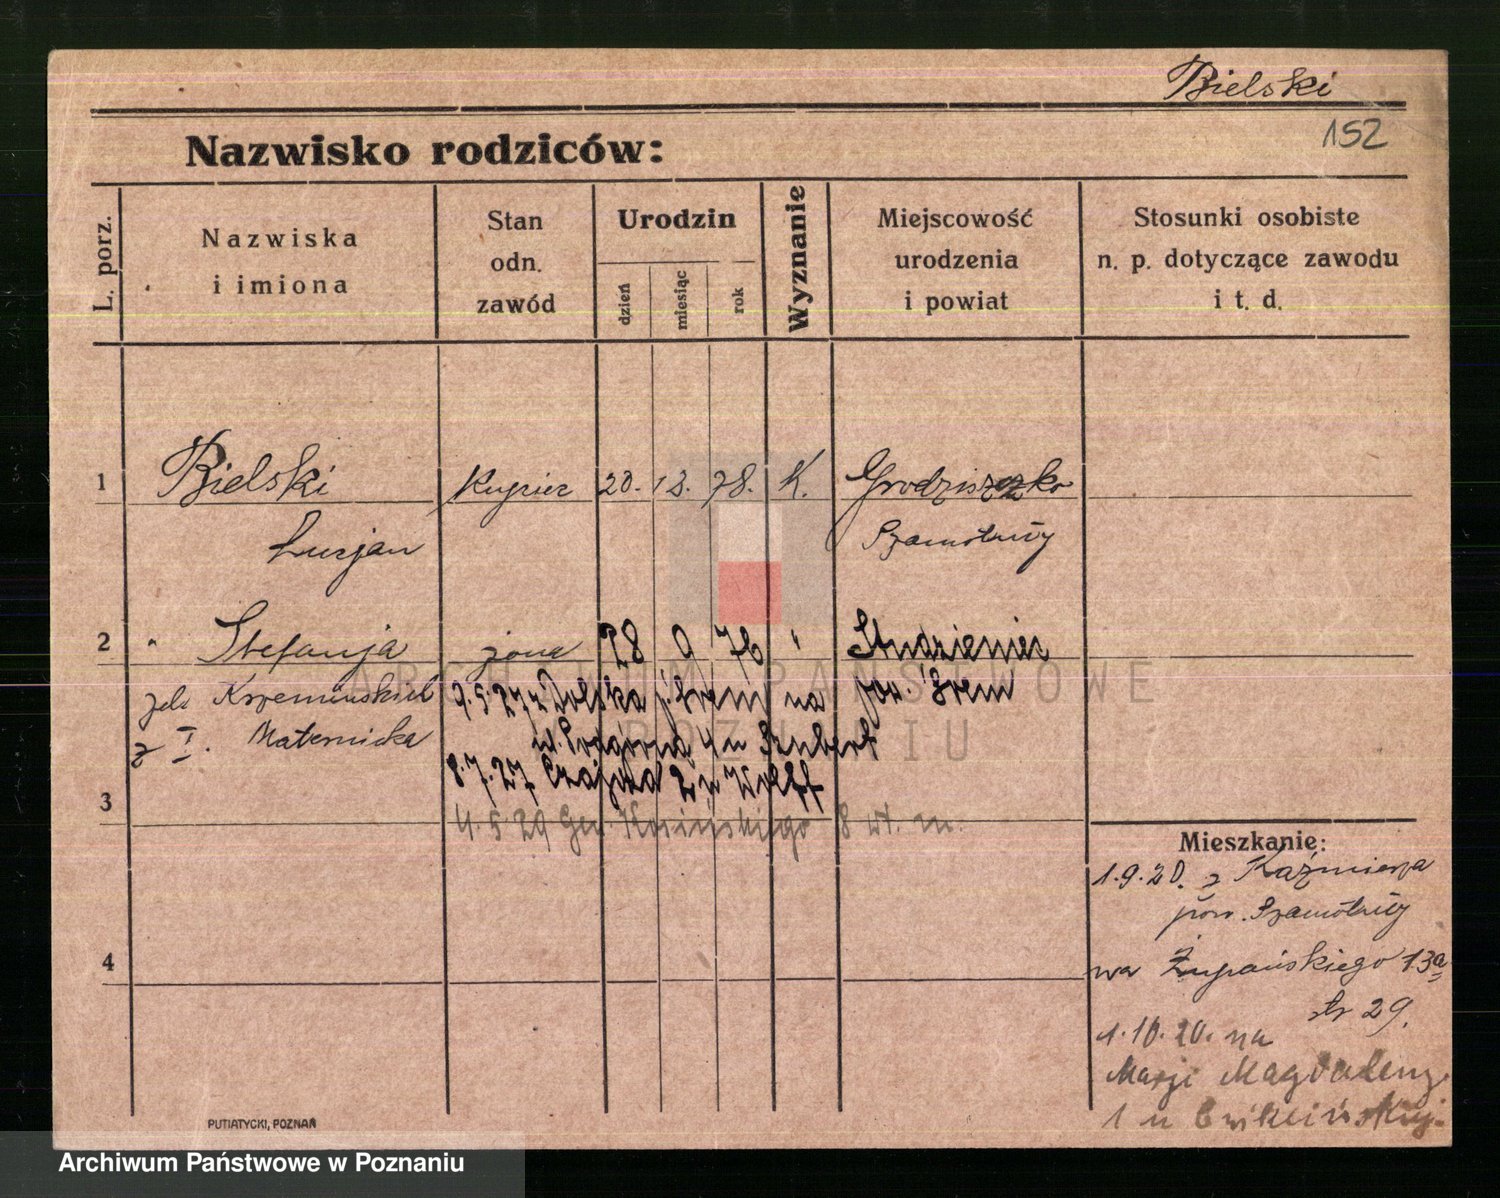 Bielski
152
Nazwisko rodziców:
L. porz.
Nazwiska
i imiona
Stan
odn.
zawód
Urodzin
dzień
miesiąc
rok
Wyznanie
Miejscowość
urodzenia
i powiat
Stosunki osobiste
n. p. dotyczące zawodu
i t. d.
1 Bielski kupiec 20. 12. 78. K. Grodziszczko
Lucjan Szamotuły
2 " Stefanja żona 28 9 76 " Studzieniec
Krzemińskich 9.5.27 z Dolska p. Śrem na pow. Śrem
z I. Maternicka ul. Podgórna 4 u Szubert
8.7.27 Czajcza 2 u Wolff
3
4.5.29 Gen. Kosińskiego 8 wł. m.
Mieszkanie:
1.9.20. z Kaźmierza
pow. Szamotuły
na Żupańskiego 13a
4
29.
1.10.20. na
Marji Magdaleny
1 u Ćwiklińskiej.
PUTIATYCKI, POZNAŃ
ARCHIWUM PAŃSTWOWE
W POZNANIU
Archiwum Państwowe w Poznaniu